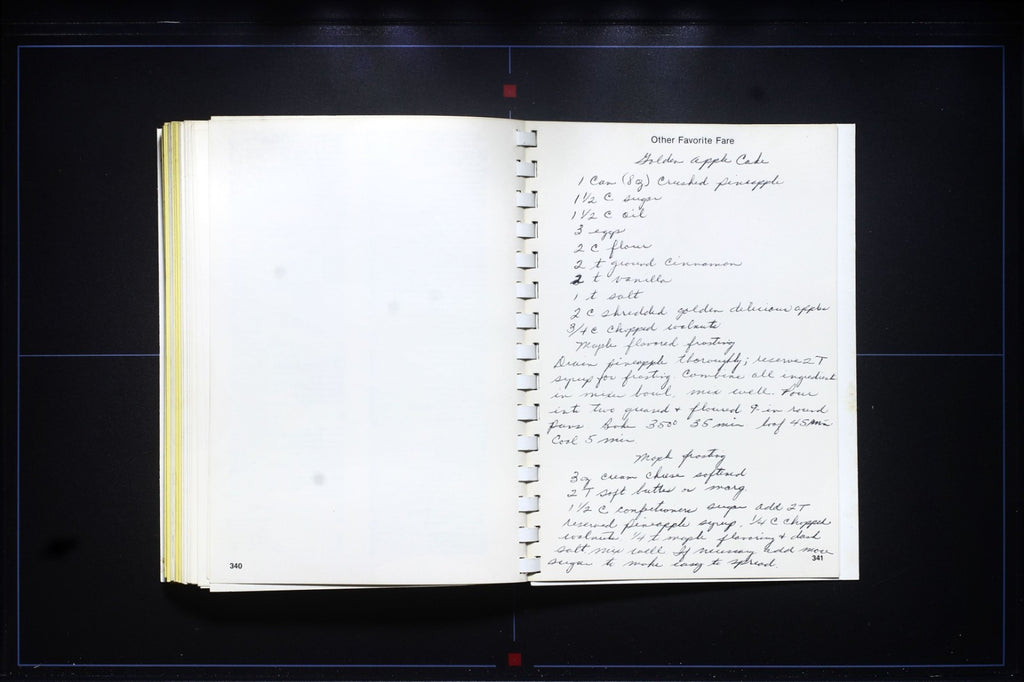 Other Favorite Fare
Golden Apple Cake
1 Can (8 oz) Crushed pineapple
1 1/2 C sugar
1 1/2 C oil
3 eggs
2 C flour
2 t ground Cinnamon
2 t vanilla
1 t salt
2 C shredded golden delicious apples
3/4 C Chopped walnuts
Maple flavored frosting
Drain pineapple thoroughly; reserve 2 T
syrup for frosting. Combine all ingredients
in mixer bowl, mix well. Pour
into two greased + floured 9-in round
pans Bake 350° 35 min loaf 45 min
Cool 5 min
Maple frosting
3 oz cream cheese softened
2 T soft butter or marg.
1 1/2 C confectioners sugar add 2 T
reserved pineapple syrup. 1/4 C Chopped
walnuts 1/4 t maple flavoring + dash
salt mix well If necessary add more
sugar to make easy to spread.
340
341